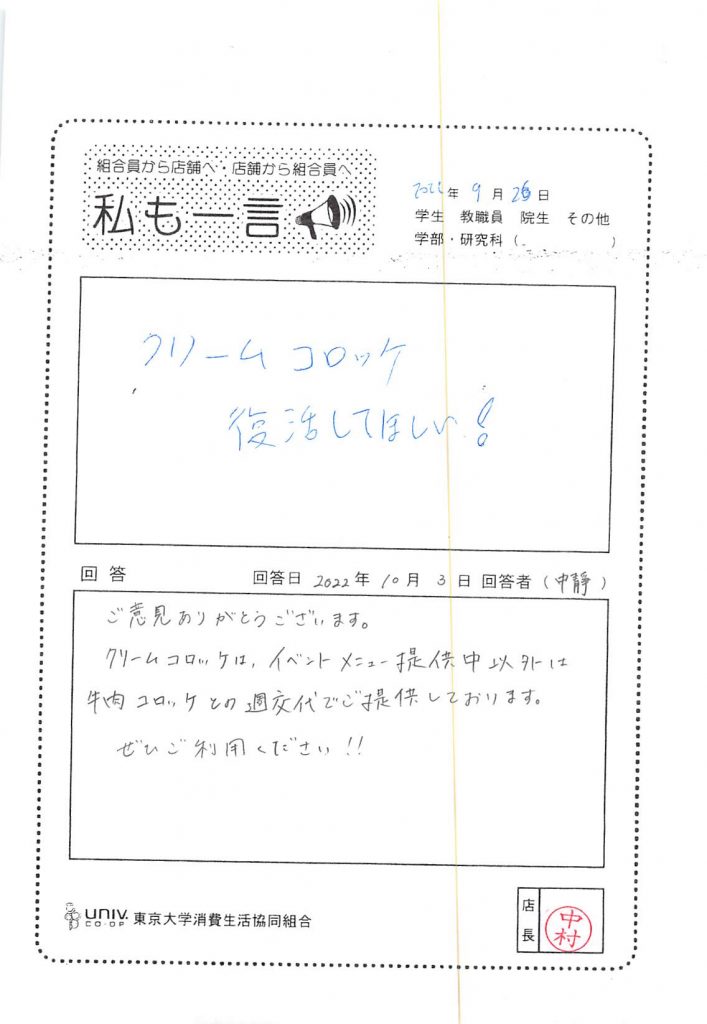 組合員から店舗へ・店舗から組合員へ
私も一言
2022年 9月 26日
学生 教職員 院生 その他
学部・研究科( )
クリームコロッケ
復活してほしい!
回答 回答日 2022年 10月 3日 回答者(中静)
ご意見ありがとうございます。
クリームコロッケは、イベントメニュー提供中以外は
牛肉コロッケとの週交代でご提供しております。
ぜひご利用ください!!
UNIV.
CO-OP
東京大学消費生活協同組合
店長
中村